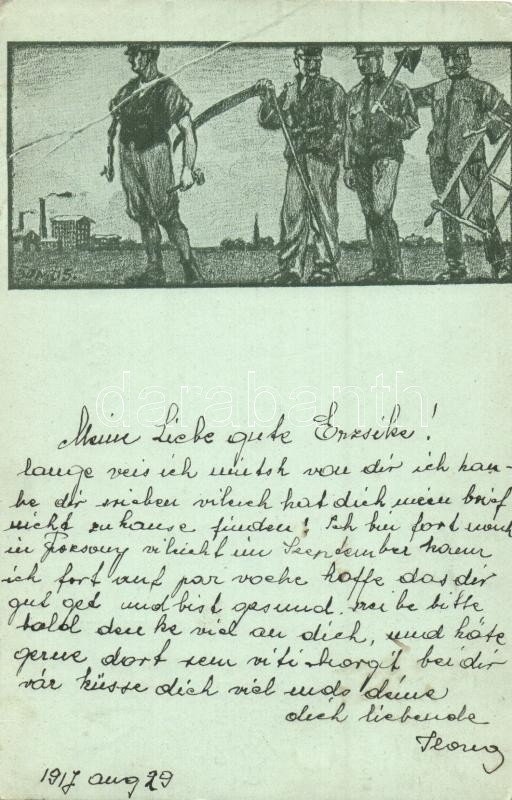 Mein Liebe gute Erzsike!
lange veis ich nintsh von dir ich han-
be dir srieben vileich hat dich mein brif
nicht zuhause finden! Ich bin fort noch
in Pozsony vileicht im Szeptember kann
ich fort auf par voche hoffe das dir
gut get und bist gesund. srei be bitte
bald den ke viel an dich, und häte
gerne dort sem viti Margit bei dir
vár küsse dich viel mals deine
dich liebende
Ilona
1917 aug 29
darabanth